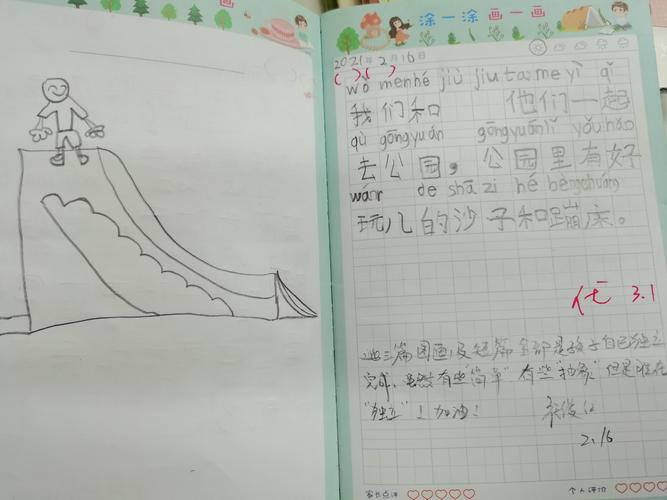 画
涂一涂 画一画
2021年2月16日
( )( )
wǒ menhé jiù jiu ta me yì qǐ
我们和 他们一起
qù gōngyuán gōngyuánlǐ yǒu hǎo
去公园，公园里有好
wánr de shā zi hé bèngchuáng
玩儿的沙子和蹦床。
优 3.1
三篇图画及短篇全部是孩子自己独立
完成，虽然有些"简单"有些"抽象"但是胜在
"独立"！加油！
2.16
家长点评
个人评价